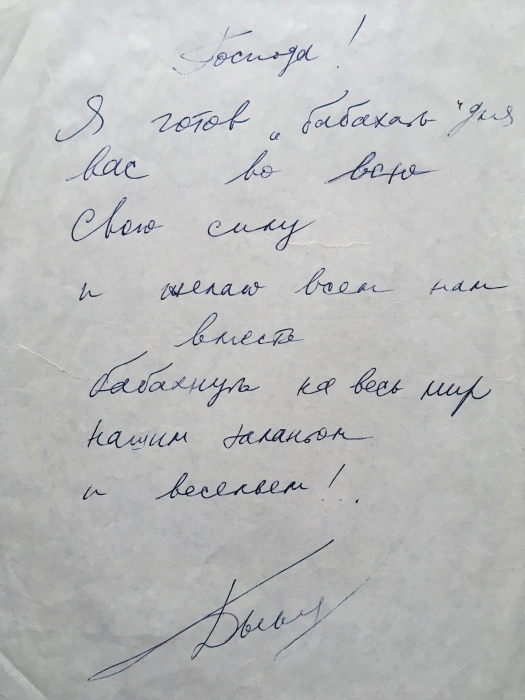 Господа!
Я готов „бабахать" для
вас во всю
свою силу
и желаю всем нам
вместе
бабахнуть на весь мир
нашим талантом
и весельем!..